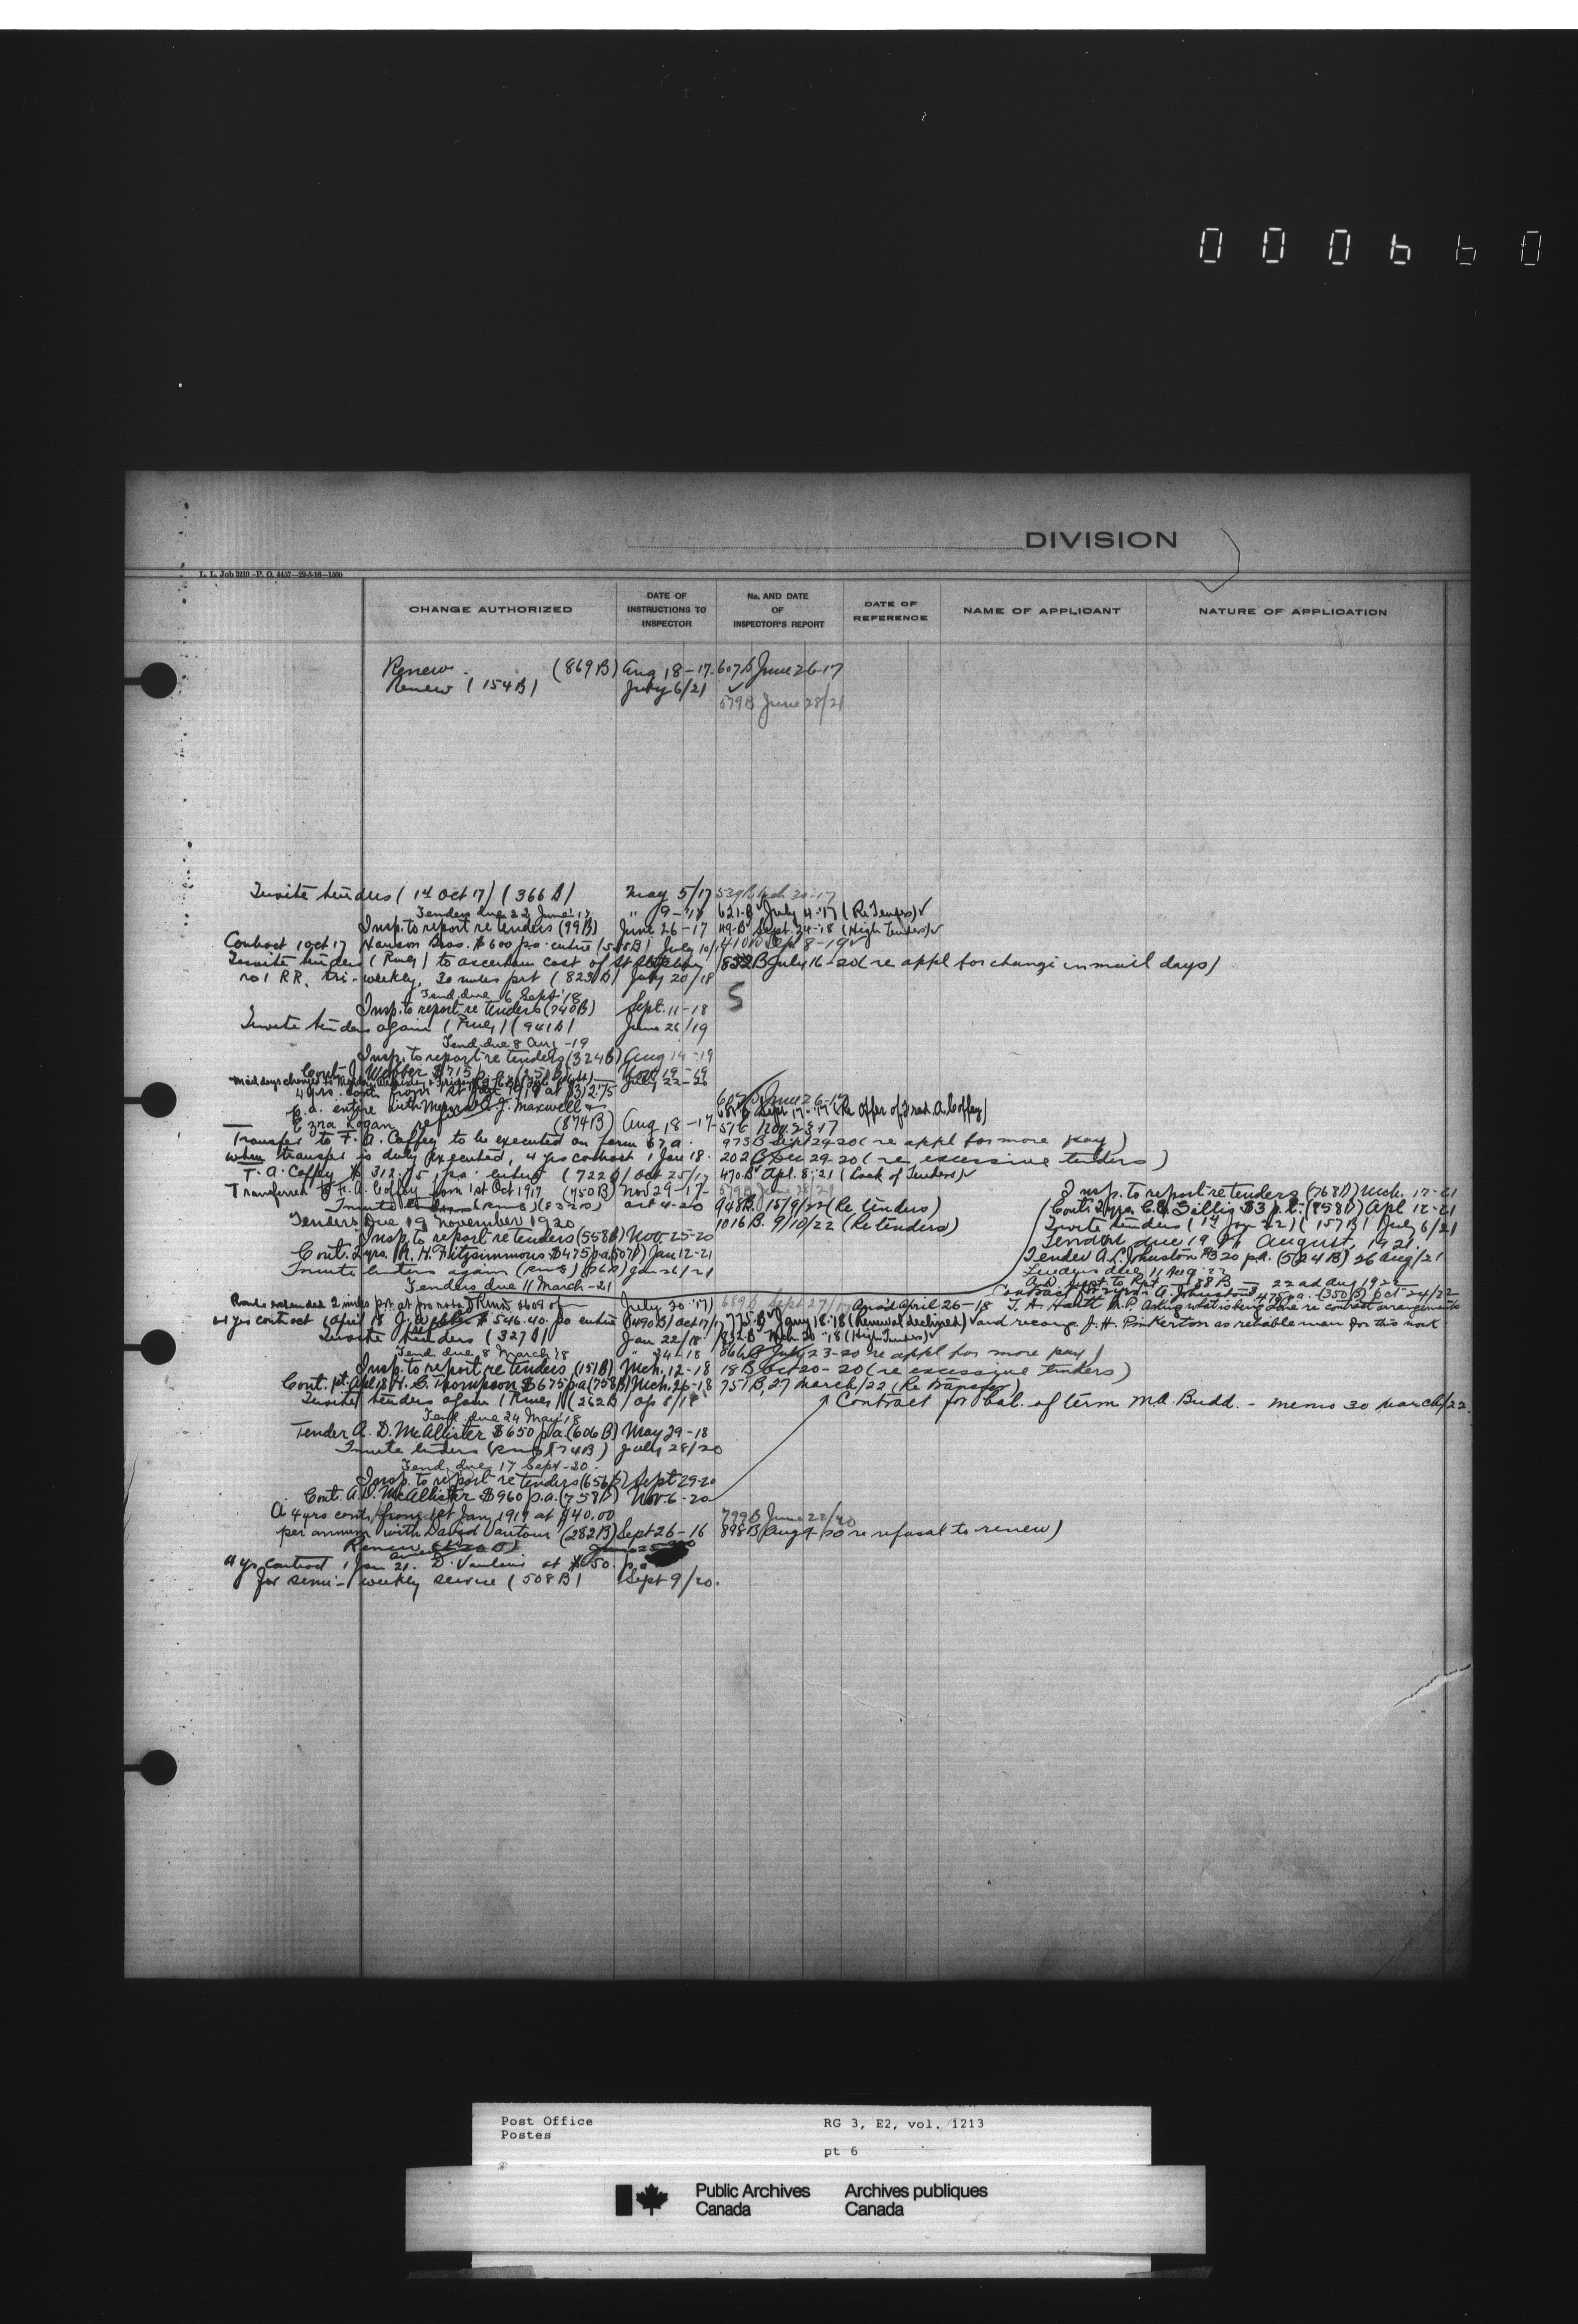 000660
DIVISION
L. L. Job 3210-P. O. 4457-29-5-16-1500
CHANGE AUTHORIZED
DATE OF INSTRUCTIONS TO INSPECTOR
No. AND DATE OF INSPECTOR'S REPORT
DATE OF REFERENCE
NAME OF APPLICANT
NATURE OF APPLICATION
Renew (869 B) Aug 18-17 607 B June 26-17
Renew (154 B) July 6/21
579 B June 28/21
Invite tenders (1st Oct 17) (366 B) May 5/17
Tenders due 22 June 17 " 9-17 621 B July 4-17 (Re Tenders)
Insp. to report re tenders (99 B) June 26-17 49 B Sept. 24-18 (High Tenders)
Contract 1 Oct 17 Hanson Bros. $600 pa. entire July 10/17
Invite tenders (Rmg) to ascertain cost of St Stephen 832 B July 16-20 (re appl for change in mail days)
no 1 RR. tri-weekly, 30 miles prt (823 B) July 20/18
Tend due 6 Sept 18
Insp. to report re tenders (740 B) Sept. 11-18
S
Invite tenders again (Rmg) (941 B) June 26/19
Tend due 8 Aug-19
Insp. to report re tenders (324 B) Aug 14-19
Cont. J. Webber $715 p.a. Nov 19-19
July 22-20
4 yrs. cont. from 1st Oct 1919 at $312.75
p.a. entire with J. Maxwell &
Ezra Logan (874 B) Aug 18-17 57 B Nov. 23-17
(Re offer of Fred. A. Coffey)
Transfer to F. A. Coffey to be executed on form 67 a. 973 B Sept 29-20 (re appl for more pay)
when transfer is duly executed, 4 yrs contract 1 Jan 18. 202 B Dec 29-20 (re excessive tenders)
F. A. Coffey $312.75 pa. entire (722 B) Oct 25/17 470 B Apl. 8, 21 (Lack of Tenders)
Transferred to F. A. Coffey from 1st Oct 1917 (750 B) Nov 29-17 579 B June 28/21
Oct 4-20 948 B. 15/9/22 (Re tenders)
Tenders Due 19 November 1920 1016 B. 9/10/22 (Re tenders)
Insp. to report re tenders (558 B) Nov-25-20
Cont. 2 yrs. R. H. Fitzsimmons $475 p.a. Jan 12-21
Invite tenders again (Rmg) Jan 26/21
Tenders due 11 March-21
Insp. to report re tenders (768 B) Mch. 17-21
(858 B) Apl 12-21
Invite tenders (1st Jan 22) (157 B) July 6/21
Tenders due 19 August, 1921.
Tender A. L. Johnston $320 p.a. (524 B) 26 Aug/21
Tenders due 11 Aug 22
22nd Aug 1922
A. Johnston $475 p.a. (350 B) Oct-24/22
Route extended 2 miles prt. at pro rata July 30 '17 689 B Sept 27/17 Ans'd April 26-18 T. A. Hartt M.P. Asking what is being done re contract arrangements
4 yrs contract 1 April 18 $546.40 pa entire (490 B) Oct 17/17 775 B Jany 18-18 (Renewal declined) and recomg. J. H. Pinkerton as reliable man for this work
Invite tenders (327 B) Jan 22/18 832 B Mch 20-18 (High Tenders)
Tend due 8 March 18 " 24-18 866 B July 23-20 re appl for more pay)
Insp. to report re tenders (151 B) Mch. 12-18 18 B Oct 20-20 (re excessive tenders)
Cont. 1st. Apl. 18 H. C. Thompson $675 p.a. (758 B) Mch. 26-18 751 B, 27 March/22 (Re transfer)
Invite tenders again (Rmg) (262 B) Ap 8/18 Contract for bal. of term M.A. Budd. - memo 30 March/22.
Tend due 24 May 18
Tender A. D. McAllister $650 p.a. (606 B) May 29-18
Invite tenders (Rmg) (74 B) July 28/20
Tend due 17 Sept-20.
Insp. to report re tenders (656 B) Sept 29-20
Cont. A. D. McAllister $960 p.a. (758 B) Nov. 6-20
A 4 yrs cont. from 1st Jany 1917 at $40.00 799 B June 22/20
per annum with David Vantour (282 B) Sept 26-16 898 B Aug 4-20 re refusal to renew)
Renew
4 yrs contract 1 Jan 21. D. Vantour at $50. p.a
for semi-weekly service (508 B) Sept 9/20.
Post Office
Postes
RG 3, E2, vol. 1213
pt 6
Public Archives
Canada
Archives publiques
Canada